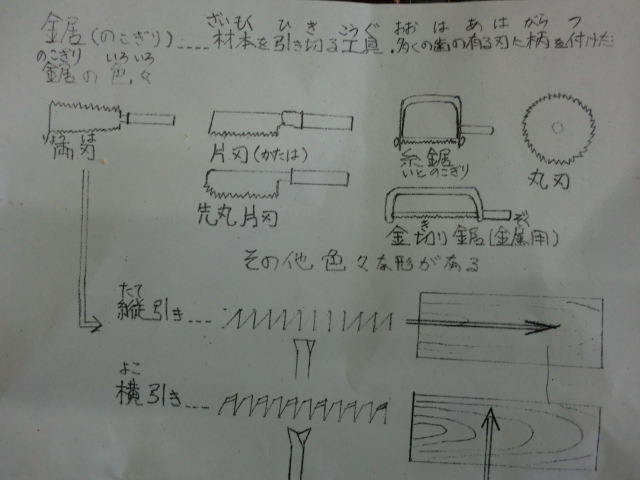 ざいもく ひ き こうぐ おお は あ は がら つ
鋸(のこぎり)....材木を引き切る工具.多くの歯の有る刃に柄を付けた
のこぎり いろいろ
鋸の色々
りょう は
両刃
片刃(かたは)
先丸片刃
糸鋸
いとのこぎり
丸刃
き ぞく
金切り鋸(金属用)
その他色々な形がある
たて
縦引き...
よこ
横引き...